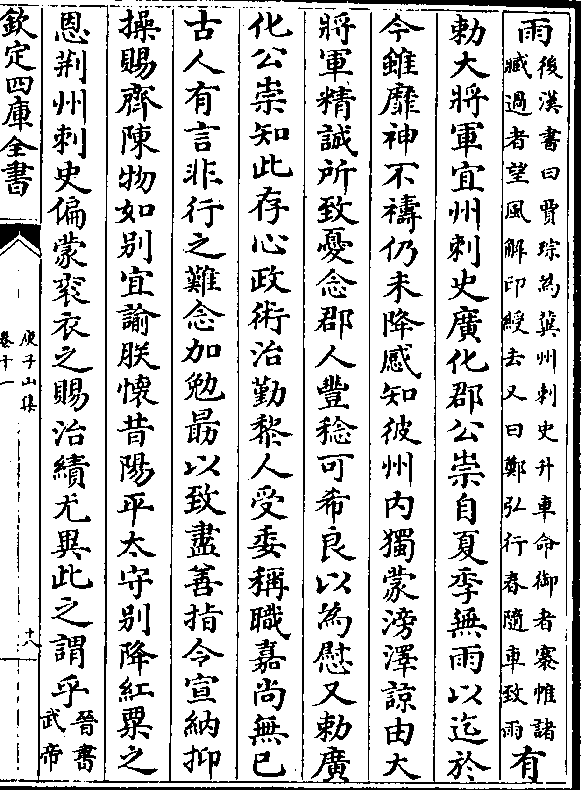 雨後漢書曰賈琮為冀州刺史升車命御者褰帷諸
臧過者望風解印綬去又曰鄭弘行春隨車致雨有
勅大將軍宜州刺史廣化郡公崇自夏季無雨以迄於
今雖靡神不禱仍未降感知彼州内獨蒙滂澤諒由大
將軍精誠所致憂念郡人豐稔可希良以為慰又勅廣
化公崇知此存心政術治勤黎人受委稱職嘉尚無已
古人有言非行之難念加勉勗以致盡善指令宣納抑
操賜齊陳物如别宜諭朕懷昔陽平太守别降紅粟之
恩荆州刺史偏蒙衮衣之賜治績尤異此之謂乎晉書
武帝
欽定四庫全書
庾子山集
卷十一
十八